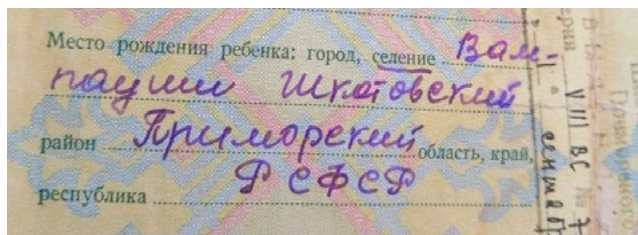 Место рождения ребенка: город, селение Вам-
пауши Шкотовский
район Приморский область, край,
республика РСФСР
VIII ВС № 7